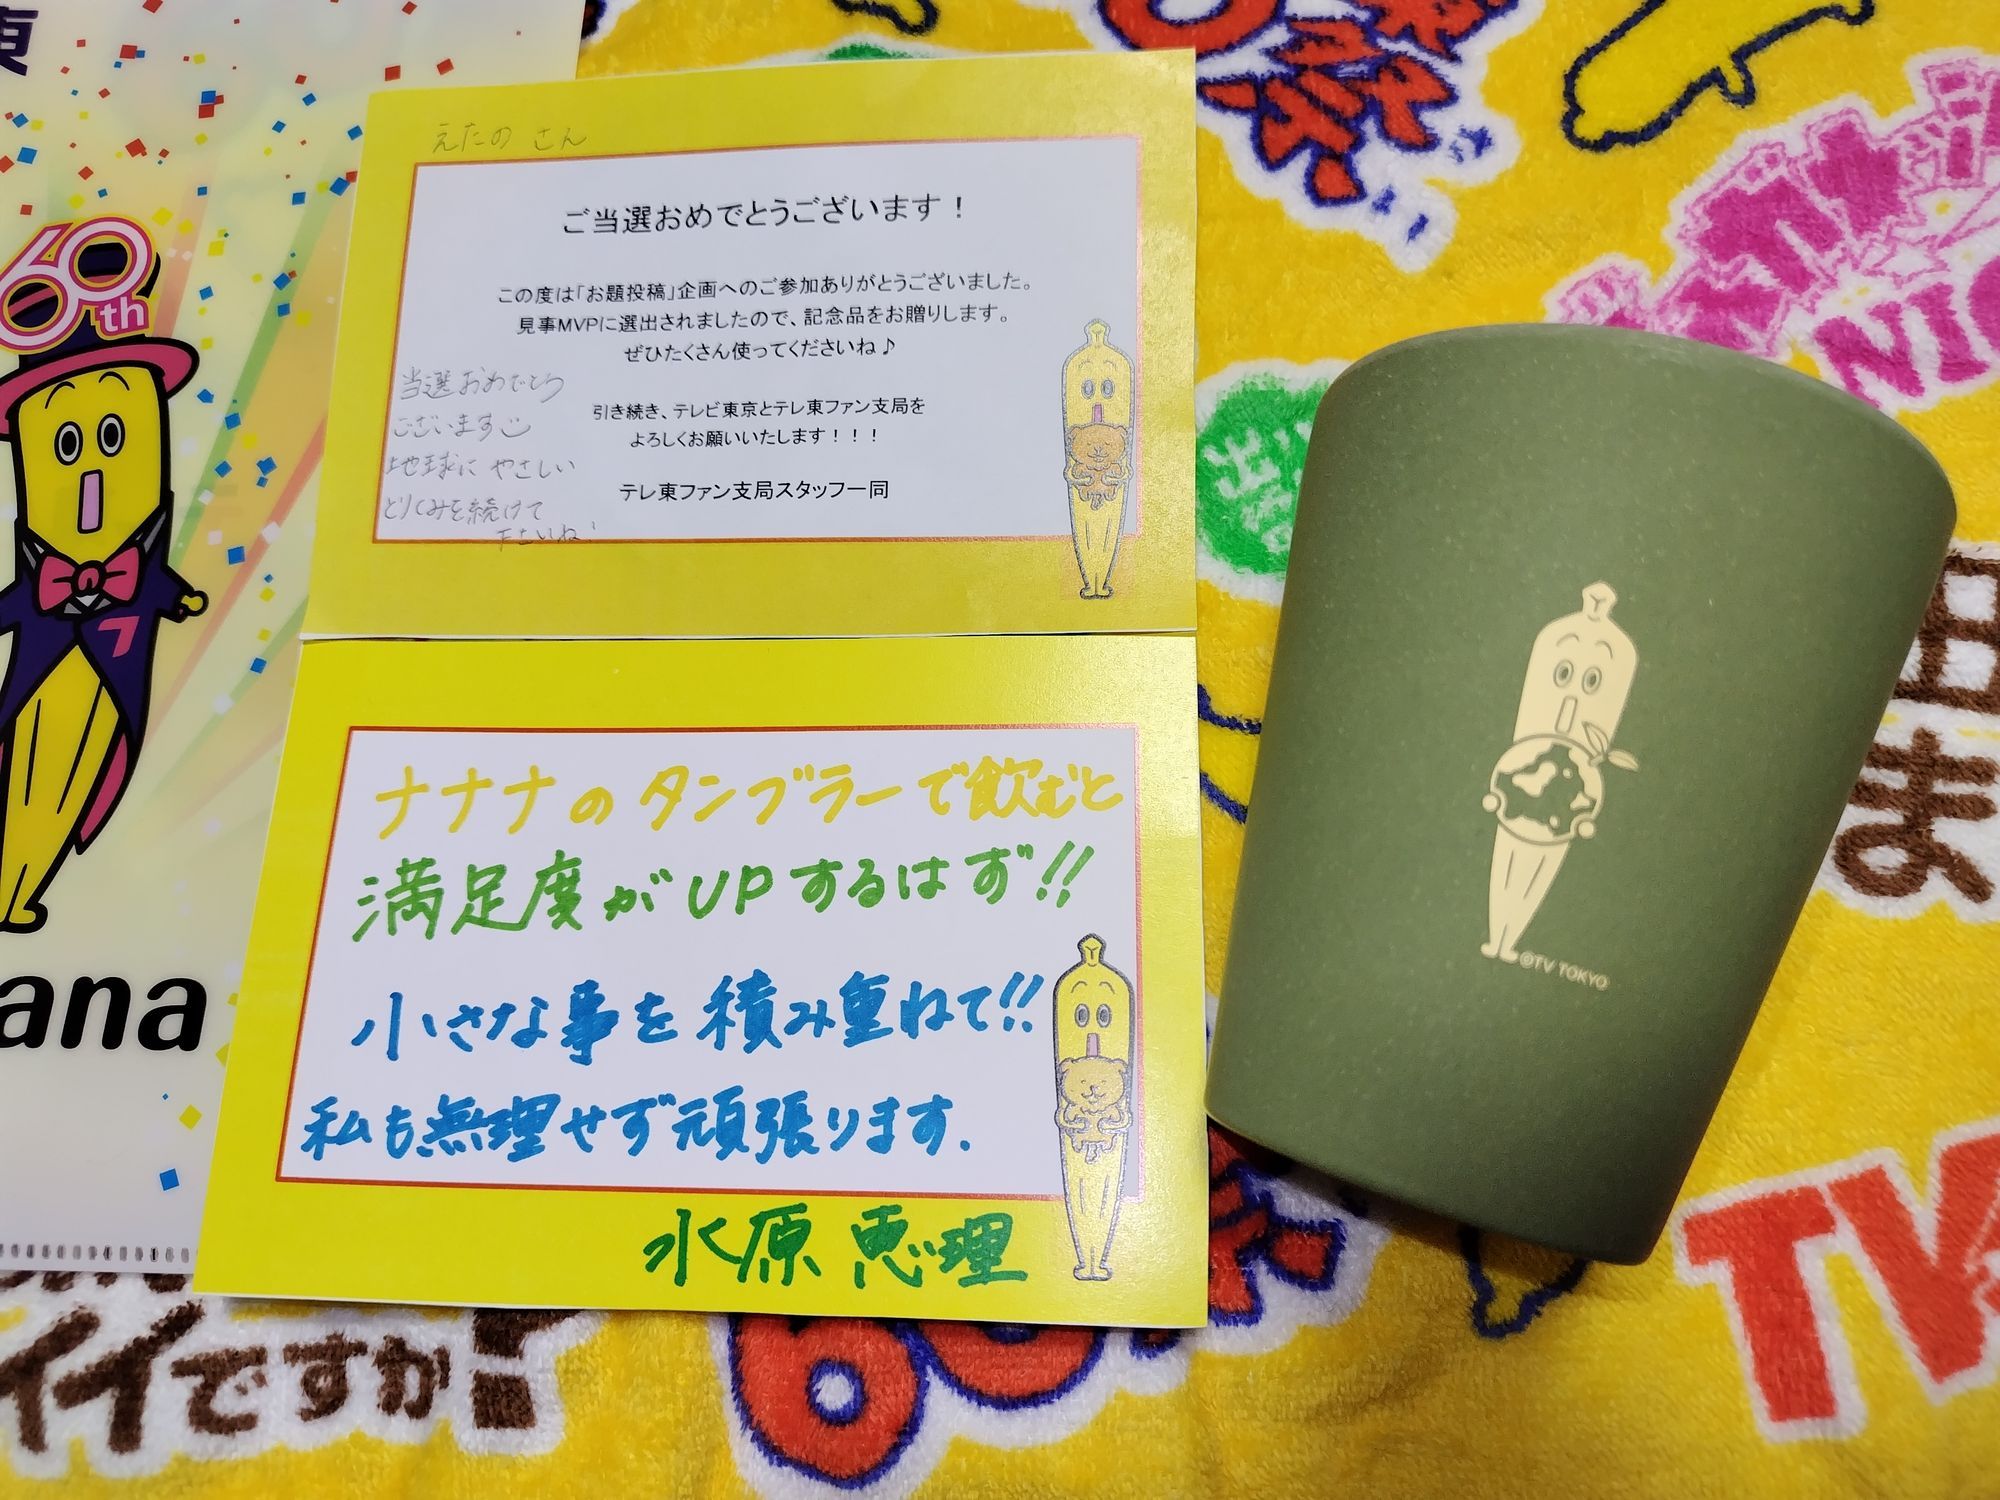 東
60th
ana
えたの さん
ご当選おめでとうございます！
この度は「お題投稿」企画へのご参加ありがとうございました。
見事MVPに選出されましたので、記念品をお贈りします。
ぜひたくさん使ってくださいね♪
引き続き、テレビ東京とテレ東ファン支局を
よろしくお願いいたします！！！
テレ東ファン支局スタッフ一同
当選おめでとう
ございます
地球に やさしい
とりくみを続けて
下さいね!
ナナナのタンブラーで飲むと
満足度がUPするはず!!
小さな事を積み重ねて!!
私も無理せず頑張ります.
水原 恵理
©TV TOKYO
イイですか
60
TV
ま
NI
出